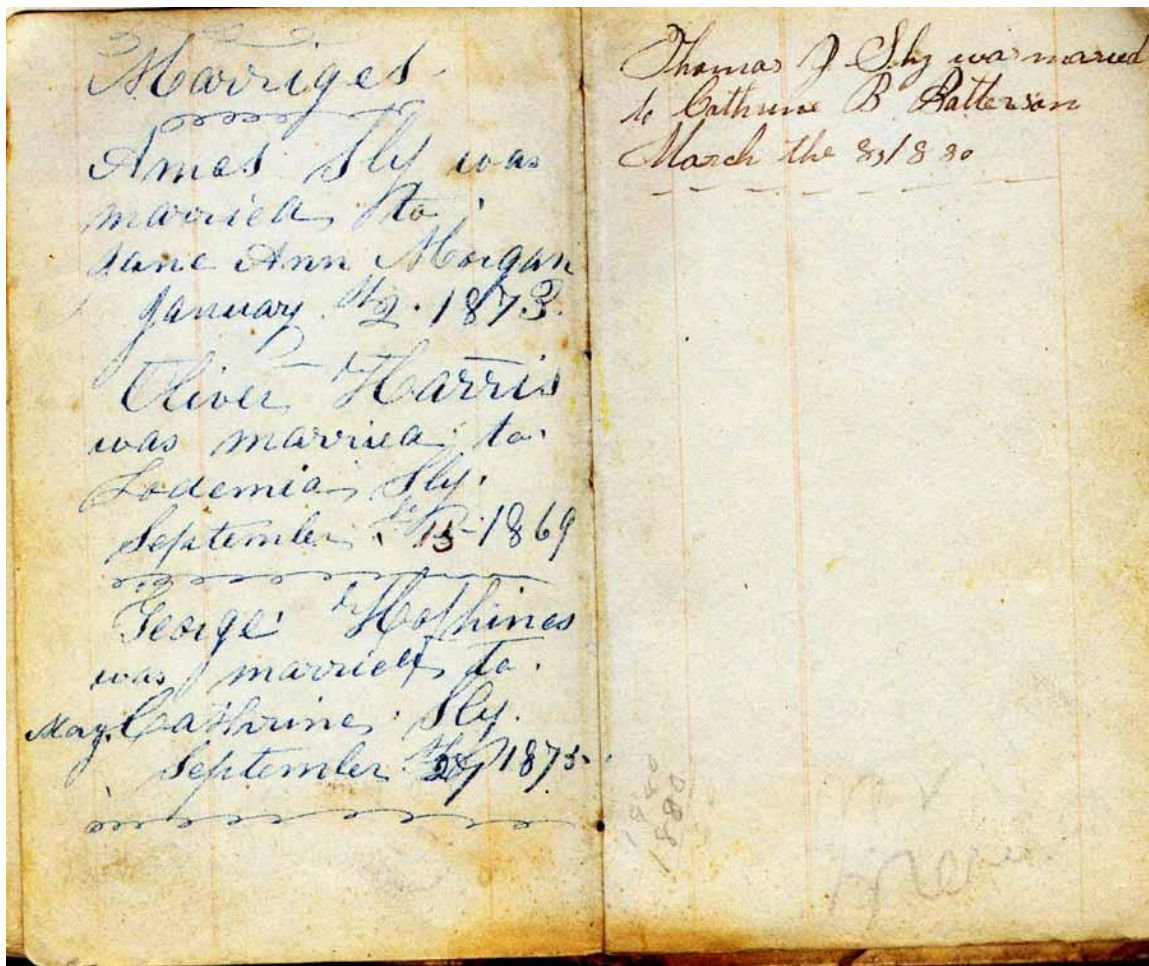 Marriges
Amos Sly was
married to
Jane Ann Morgan
January th 2. 1873.
Oliver Harris
was married to
Lodemia Sly.
September 15 1869
George Hophines
was married to.
May. Cathrine Sly.
September 1875
Thomas J Sly was maried
to Cathrine B Patterson
March the 8, 1880
1880